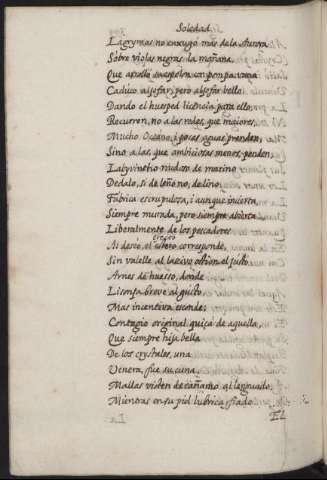 Soledad
Lagrymas no enxugo más de la Aurora
Sobre violas negras la mañana,
Que arrolló su espolon con pompa vana
Caduco aljofar, pero aljofar bello.
Dando el huesped licencia para ello,
Recurren, no a las redes, que maiores,
Mucho Oceano, i pocas aguas prenden,
Sino a las, que ambiciosas menos penden,
Labyrinthio nudoso de marino
Dedalo, si de leño no, de lino,
Fabrica escrupulosa, i aunque incierta,
Siempre murada, pero siempre abierta.
Liberalmente de los pescadores
Al deseo, el estero corresponde,
Sin valelle al lascivo ostion el justo
Arnes de huesso, donde
Lisonja breve al gusto,
Mas incentiva, esconde:
Contagio original quiça de aquella,
Que siempre hija bella
De los crystales, una
Venera, fue su cuna.
Mallas visten de cañamo al lenguado,
Mientras en su piel lubrica fiado
El